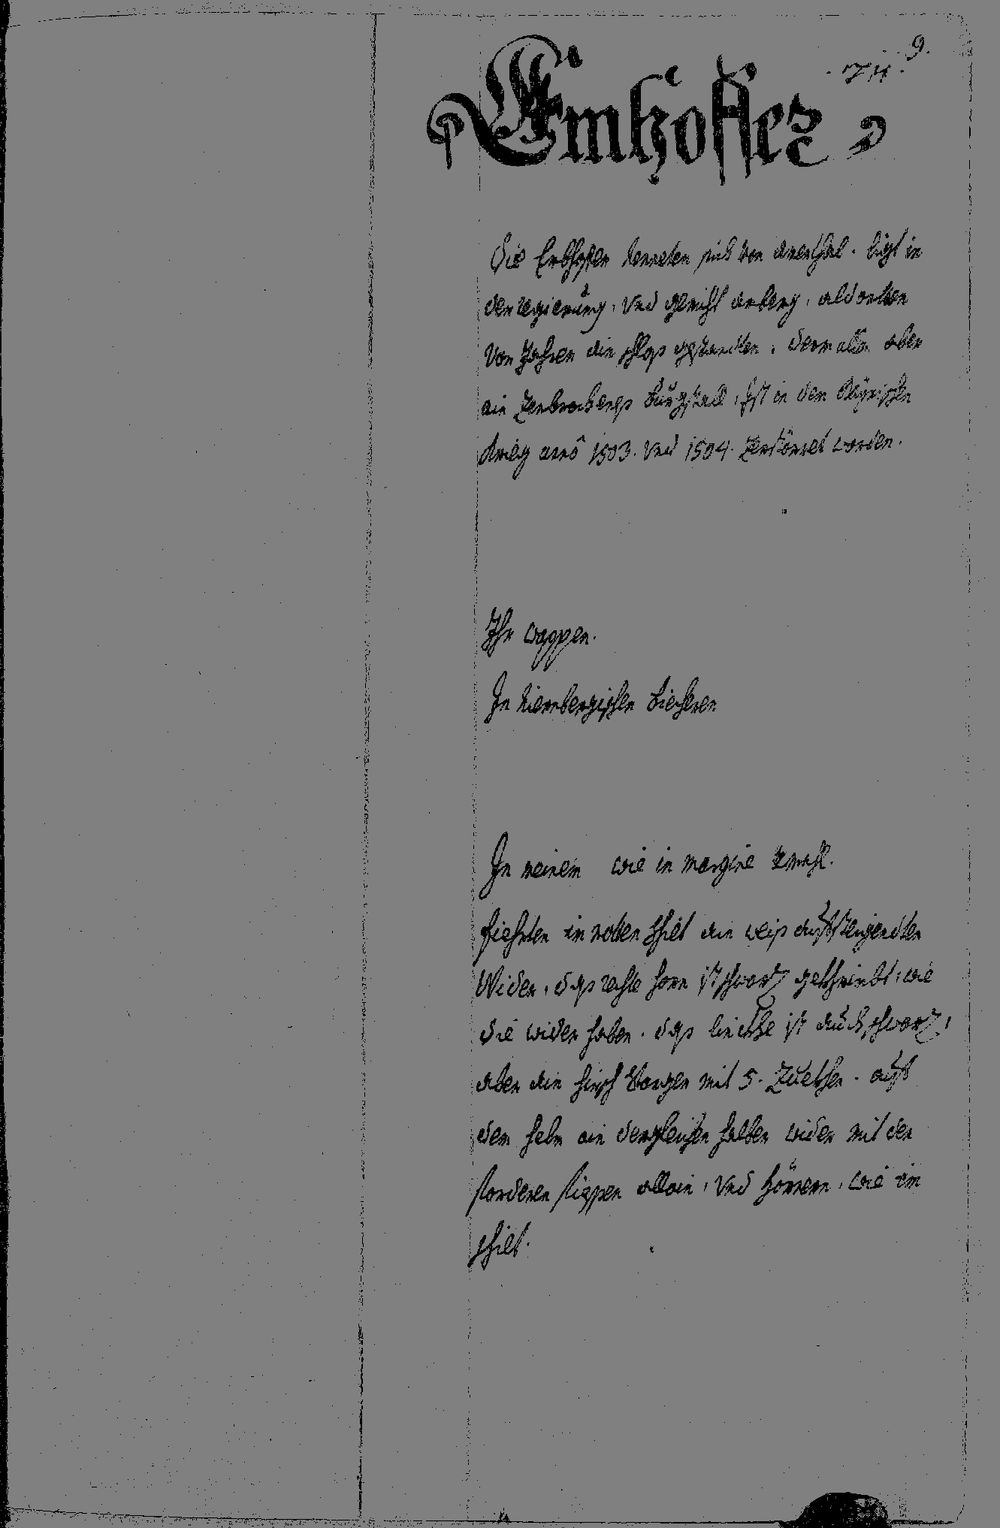 9.
711.
Emhoffer
Die Embhofen nenneten sich von   ligt in
der regierung, vnd gericht amberg, aldorten
Von Jahren ein schlos gestandten, dermallen aber
ein Zerbrochenes burgstall, ist in dem Bayrischen
krieg anno 1503. vnd 1504. Zerstöret worden.
Ihr wappen.
In niernbergischen biechern
In meinem wie in margine
fiehrten in roten schilt ein weis aufsteigendten
Wider, das rechte horn ist schwarz gekhrimbt, wie
die wider haben. das linckhe ist auch schwarz,
aber ein hirsch stangen mit 5. Zückhen. auf
dem helm ein dergleichen halben wider mit den
fordern fiessen allein, vnd hörnern, wie im
schilt.